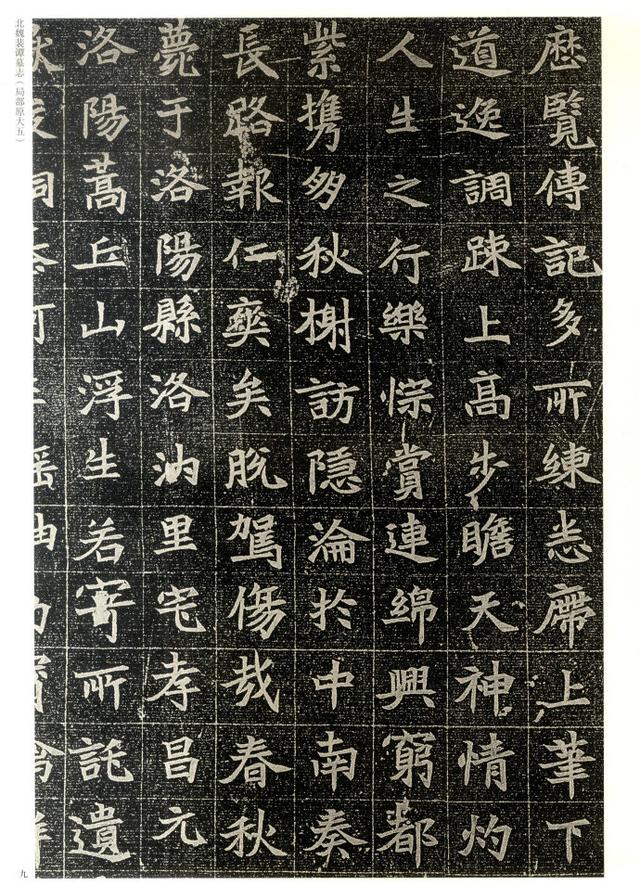 歷覽傳記多所練悉席上筆下
道逸調踈上高步瞻天神情灼
人生之行樂悰賞連綿興窮都
紫携秋榭訪隱淪於中南奏
長路報仁爽矣脫駕傷哉春秋
薨于洛陽縣洛汭里宅孝昌元
洛陽嵩丘山浮生若寄所託遺
北魏裴譚墓志（局部原大五）
九